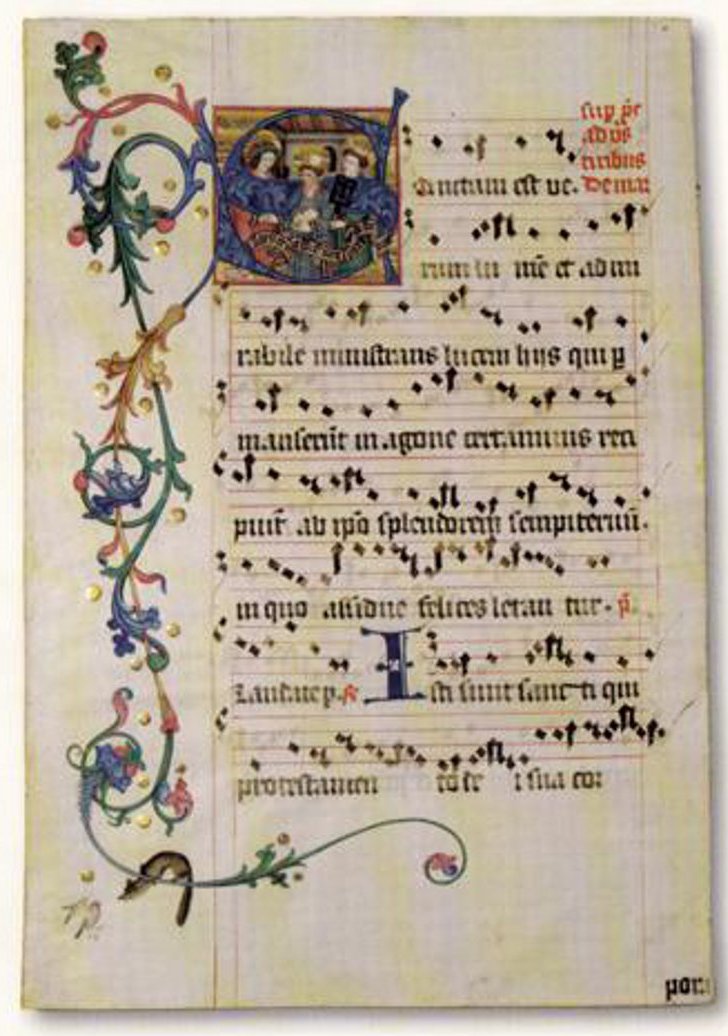 sup ps
ad vs
Sanctum est ve.
rum lu mē et ad mi
rabile ministrans lucem hijs qui p
manserūt in agone certaminis reci
piūt ab ipo splendorem sempiternū.
in quo assidue felices letan tur. ps.
Laudate p. R
Isti sunt sanc ti qui
pro testamen to de i sua cor
pora